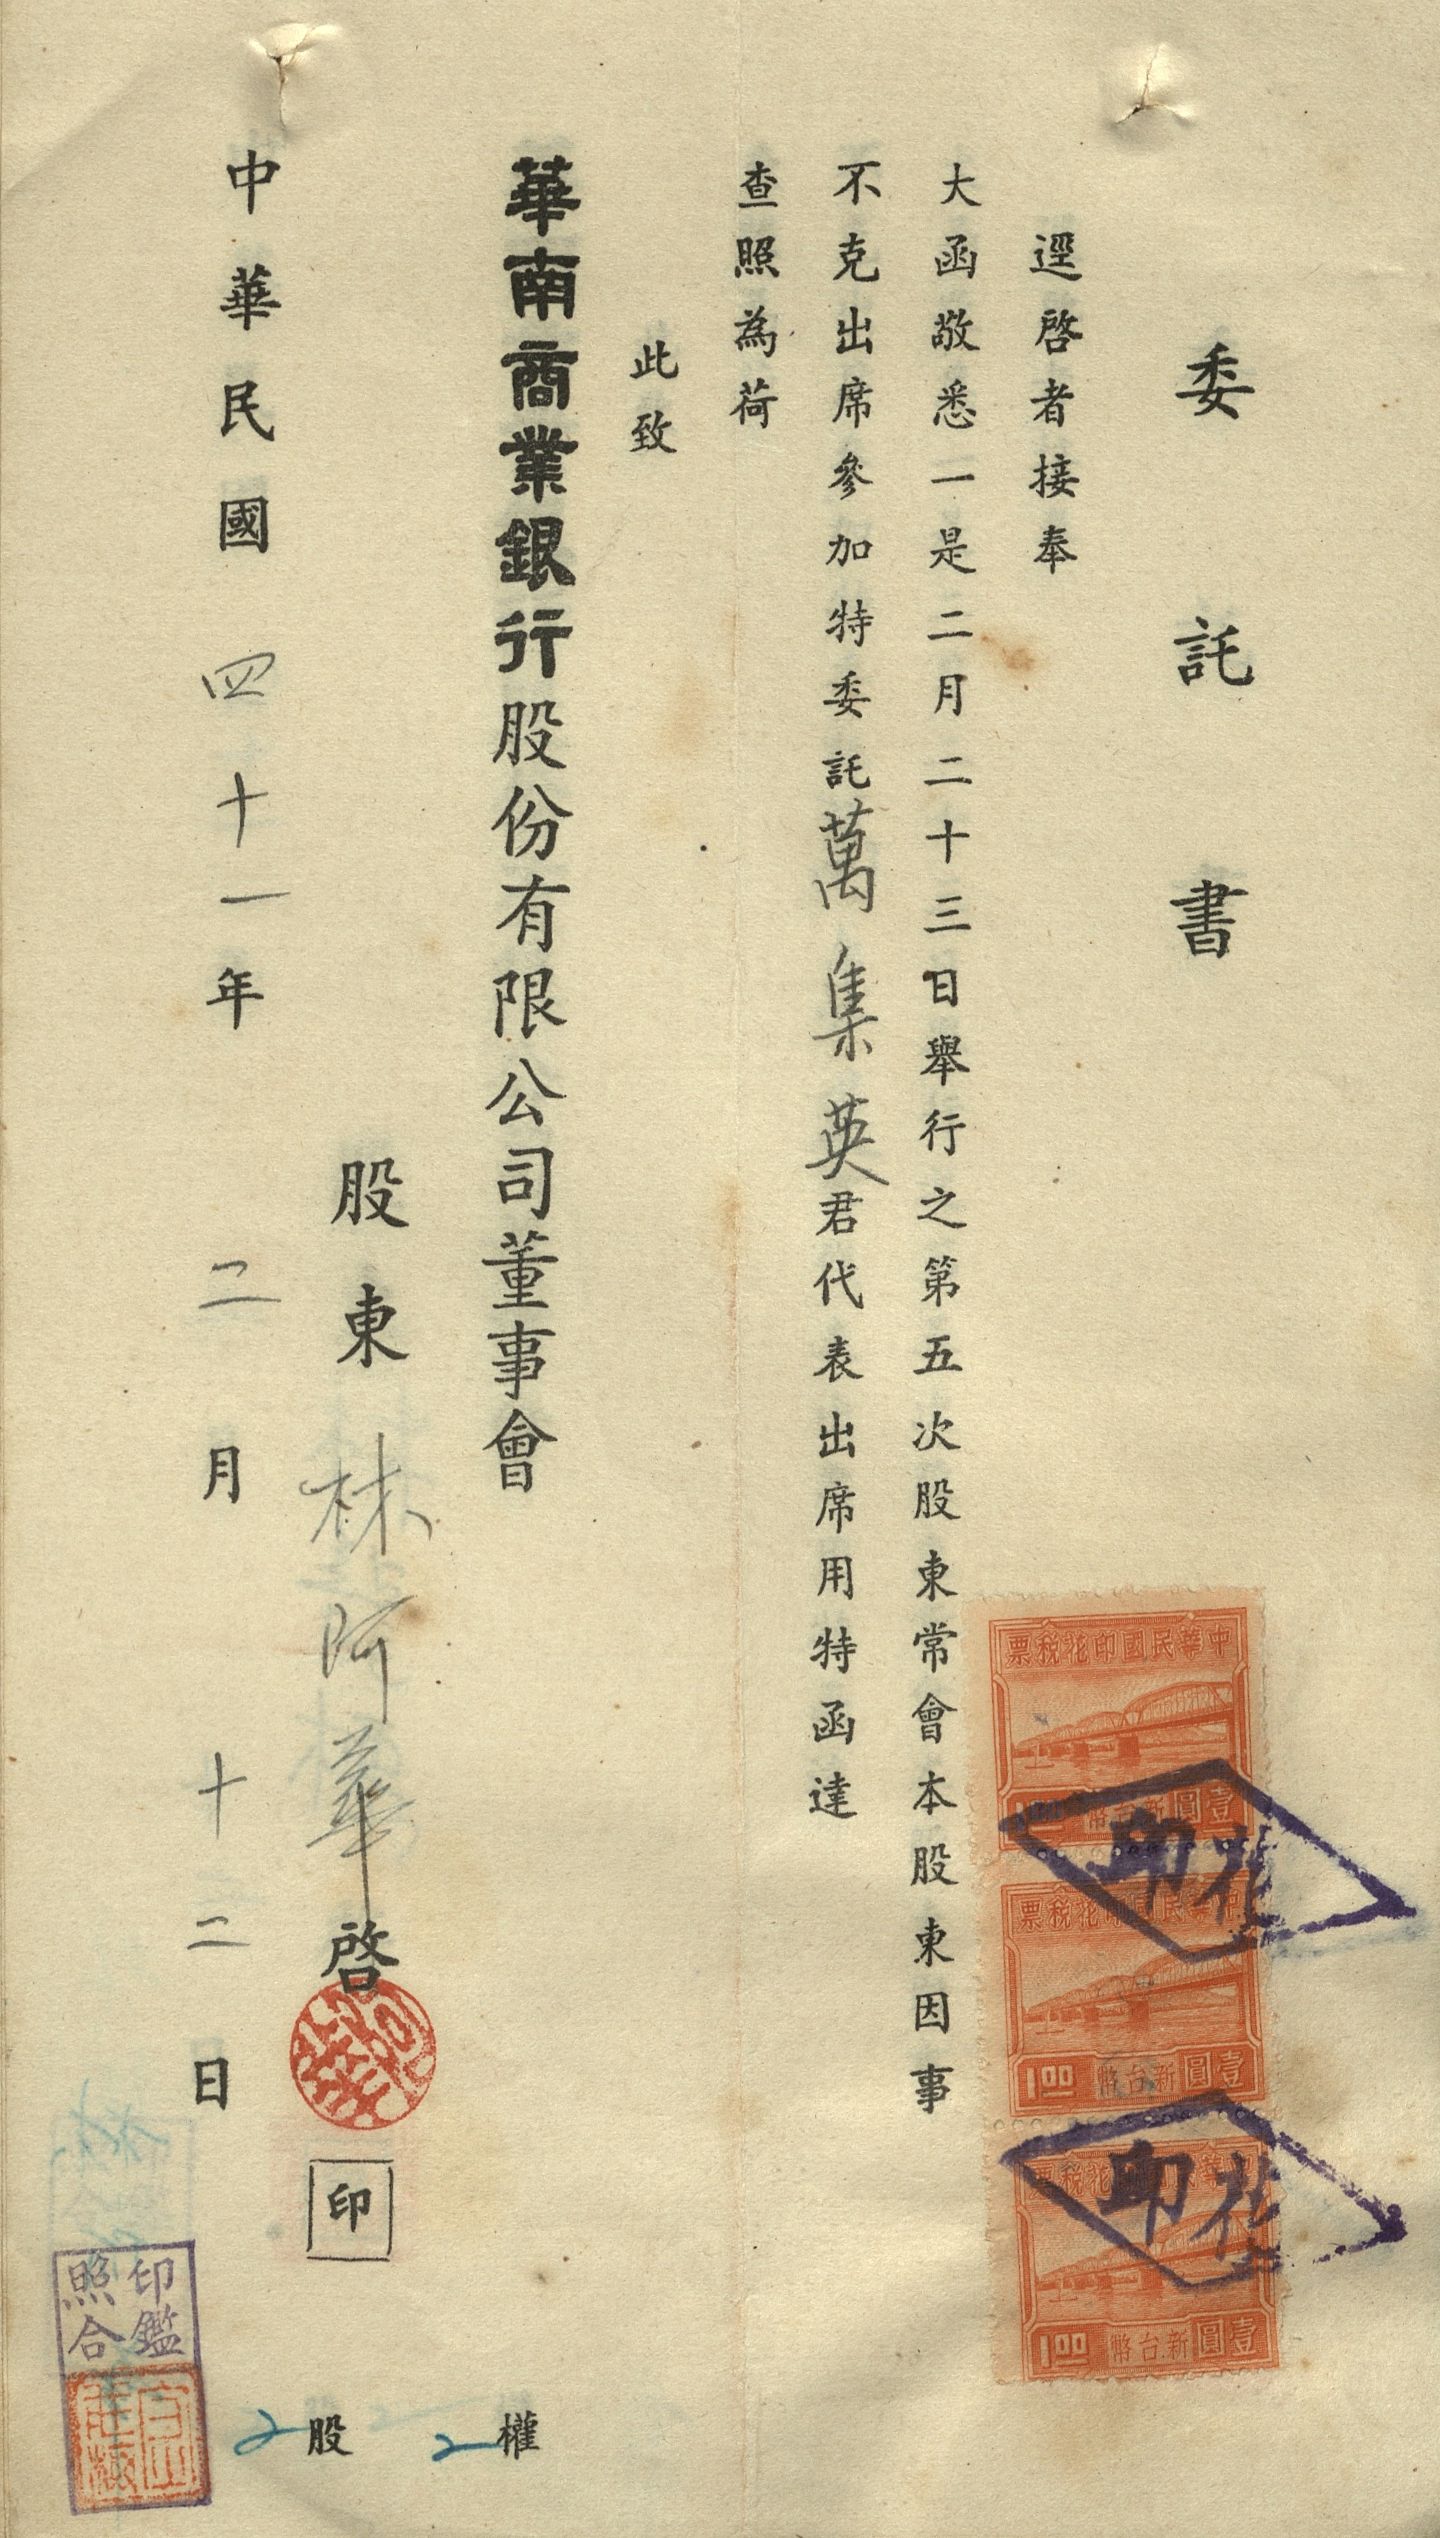 委託書
逕啓者接奉
大函敬悉一是二月二十三日舉行之第五次股東常會本股東因事
不克出席參加特委託萬集英君代表出席用特函達
查照為荷
此致
華南商業銀行股份有限公司董事會
股東林阿華啓
印
中華民國四十一年二月十二日
2權
2股
印鑑
照合
中華民國印花稅票
壹圓新台幣
花印
中華民國印花稅票
壹圓新台幣1.00
花印
中華民國印花稅票
壹圓新台幣1.00